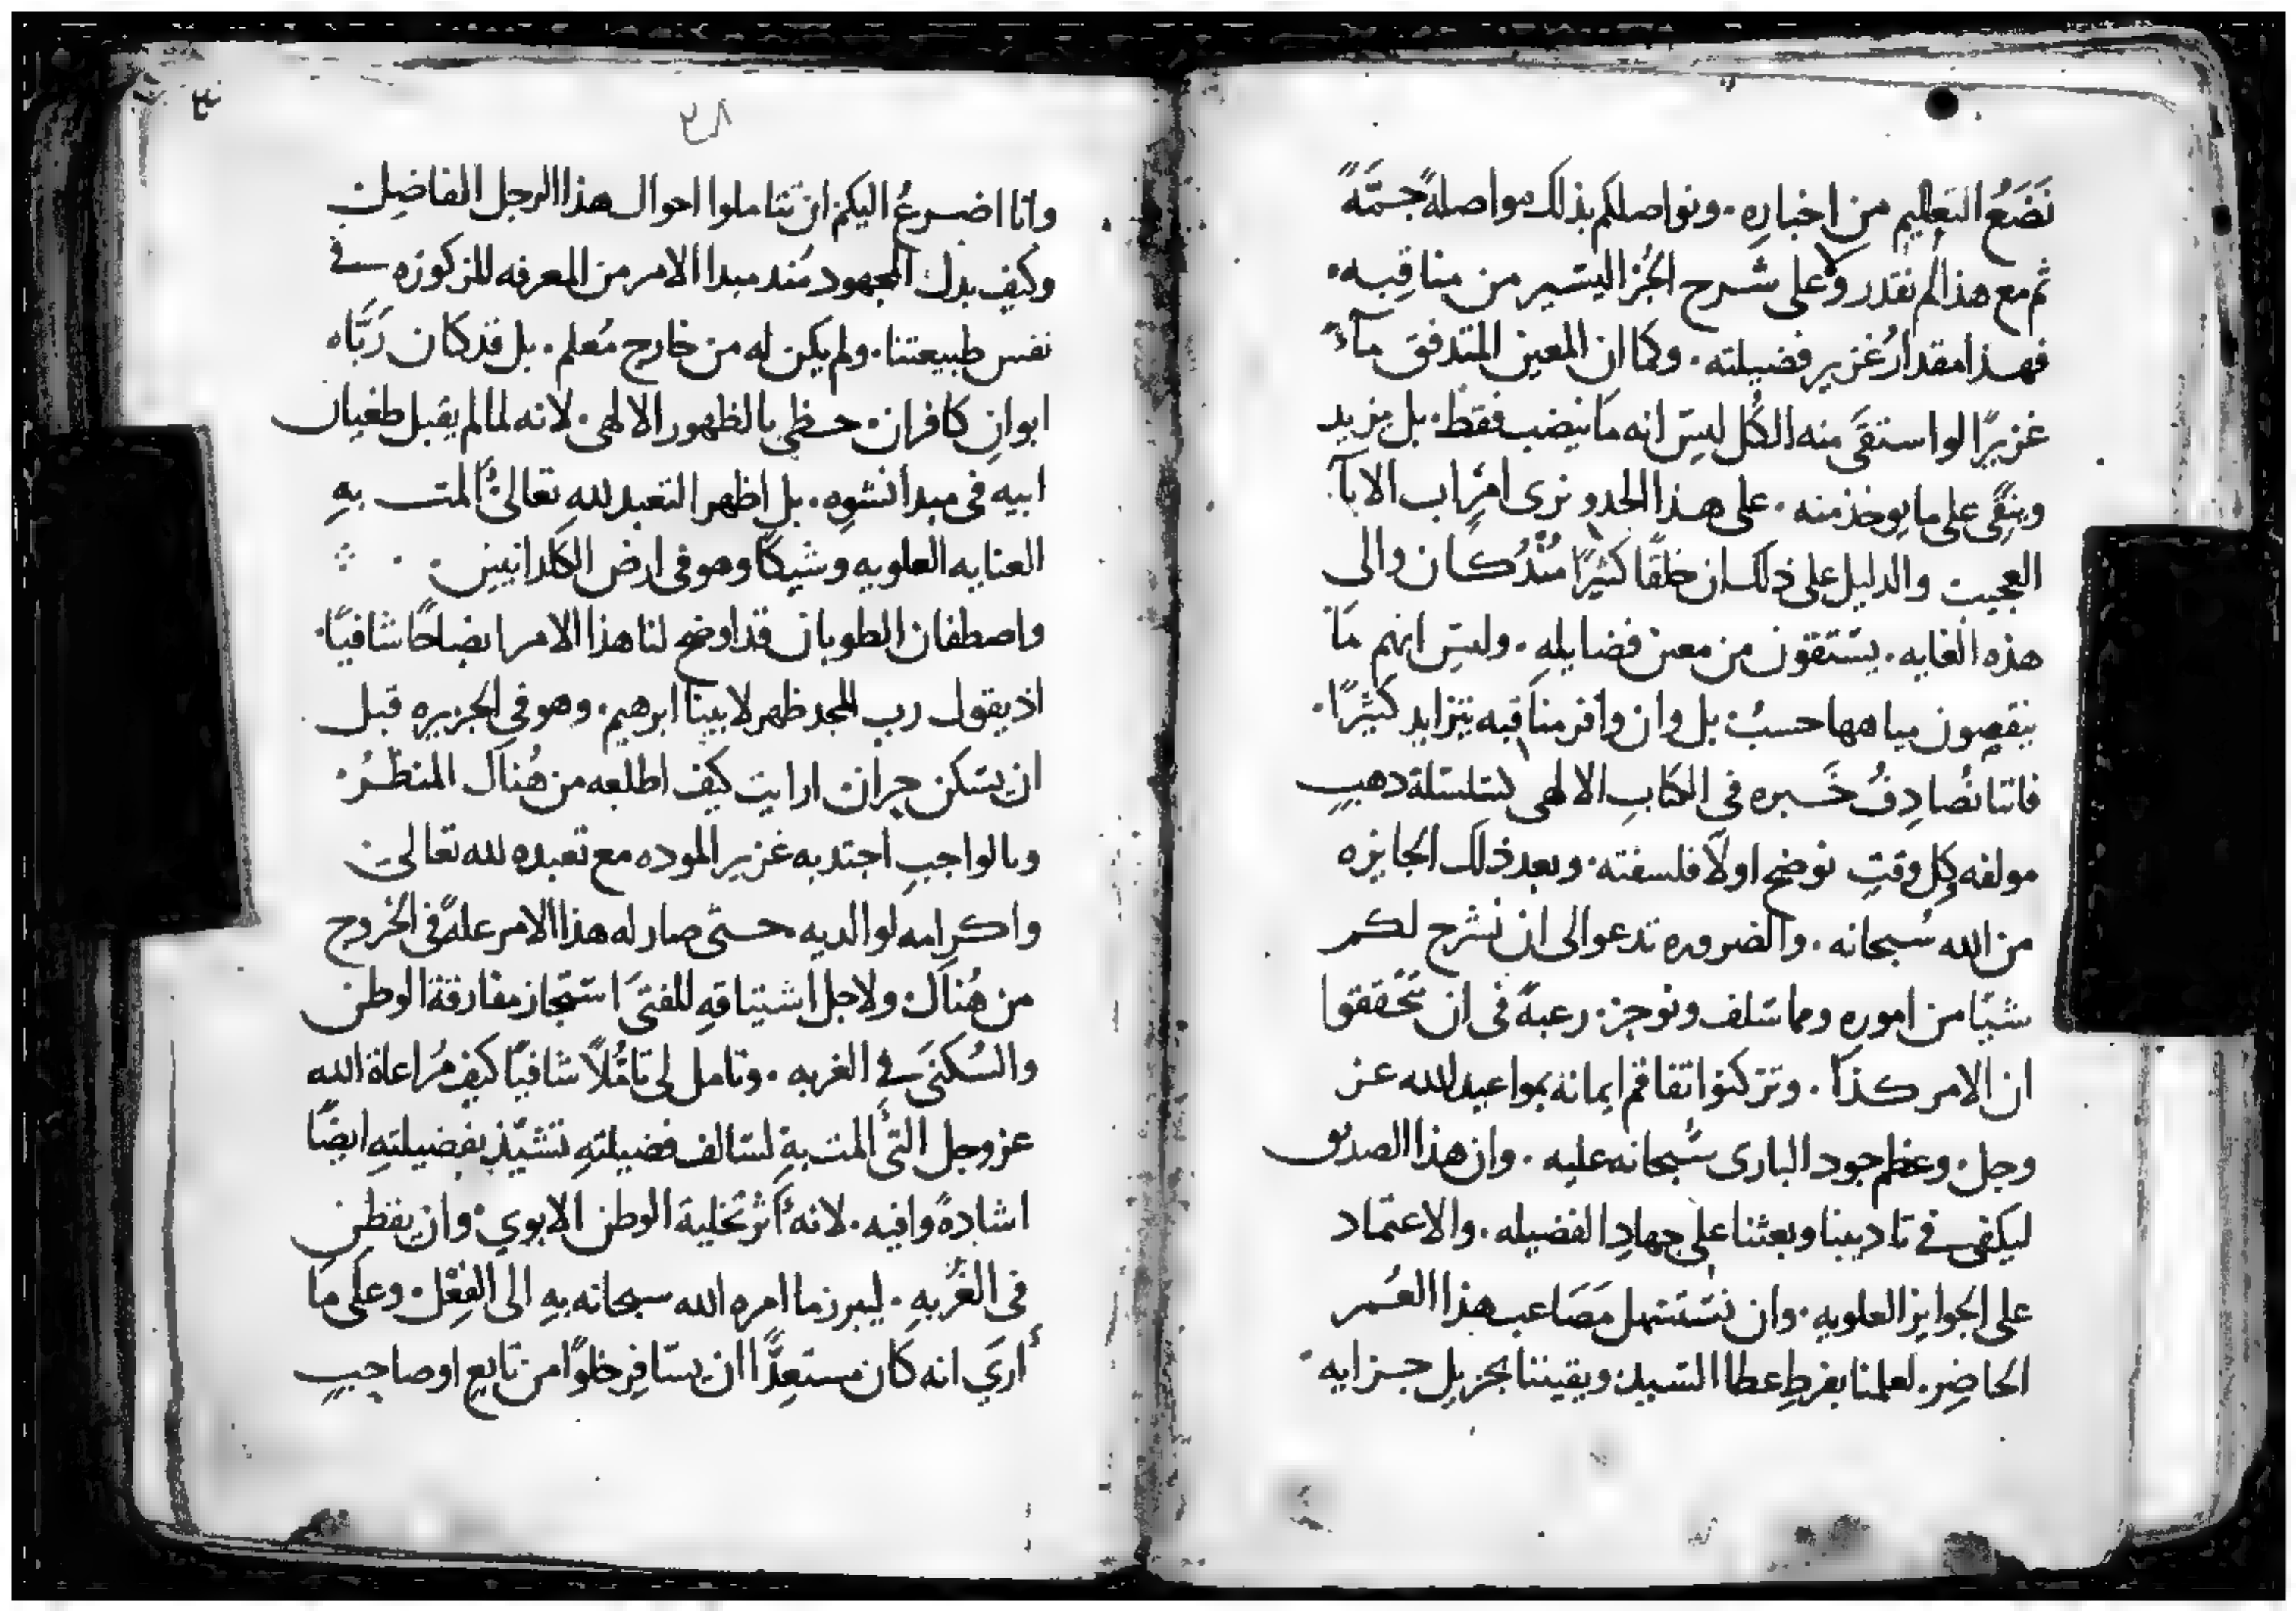 نَضَعُ التعليم من اخباره . ونواصلكم بذلك مواصلةً جمَّةً
ثم مع هذا لم نقدر ولا على شرح الجُز اليسير من مناقبه .
فهذا مقدار غزير فضيلته . وكما ان المعين المتدفق مآءً
غزيرًا لو استقَى منه الكُل ليس انه ما ينضب فقط . بل يزيد
وينمى على ما يوخذ منه . على هذا الحد و نرى امر اب الابآ
العجيب والدليل على ذلك ان خلقًا كثيرًا مُنذُ كان والى
هذه الغايه . يستقون من معين فضايله . وليس انهم مَا
ينقصون مياهها حسبُ بل وان وافر مناقبه يتزايد كثيرًا .
فاننا نُصادِفُ خَبره في الكتابِ الالهي كسلسلة دهبٍ
مولفه كل وقتٍ نوضح اولاً فلسفته . وبعد ذلك الجايزه
من الله سُبحانه . والضروره تدعوا الى ان نشرح لكم
شيًا من اموره ومما سلف ونوجز . رغبةً في ان تتحققوا
ان الامر كذا . وتزكنوا تفاقم ايمانه بمواعيد الله عز
وجل . وعظم جود الباري سُبحانه عليه . وان هذا الصديق
ليكفى في تاديبنا وبعثنا على جهادِ الفضيله . والاعتماد
على الجوايز العلويه . وان نستسهل مَصَاعب هذا العُمر
الحاضِر . لعلمنا بفرطِ عطا السيد . ويقيننا بجزيل جزايه
٣٨
وانا اضرعُ اليكم ان تتاملوا احوال هذا الرجل الفاضِل .
وكيف بدل المجهود مُند مبدا الامر من المعرفه المركوزه في
نفس طبيعتنا . ولم يكن له من خارج مُعلم . بل قد كان رَبَّاه
ابوانِ كافران . حظي بالظهور الالهي . لانه لما لم يقبل طغيان
ابيه في مبدا نشوه . بل اظهر التعبد لله تعالى المت بهِ
العنايه العلويه وشيكًا وهو في ارض الكلدانيين .
واصطفان الطوبان قد اوضح لنا هذا الامر ايضاحًا شافيًا .
اذ يقول رب المجد ظهر لابينا ابرهيم . وهو في الجزيره قبل
ان يسكن حران . ارايت كيف اطلعه من هُناك المنظرُ .
وبالواجبِ اجتدبه غزير الموده مع تعبده لله تعالى .
واكرامه لوالديه حتى صار له هذا الامر علةً في الخروج
من هُناك . ولاجل اشتياقهِ للفتىَ استجاز مفارقة الوطن
والسُكنَى في الغربه . وتامل لى تامُّلاً شافيًا كيف مُراعاة الله
عز وجل التي المت بهِ لسالف فضيلتهِ تشيّد بفضيلتهِ ايضًا
اشادةً وافيه . لانه أثر تخلية الوطن الابوي . وان يقطن
في الغُربهِ . ليبرز ما امره الله سبحانه بهِ الى الفِعْل . وعلى مَا
أرىَ انه كان مستعِدًّا ان يسافِر خلوًا من تابعٍ او صاحبٍ